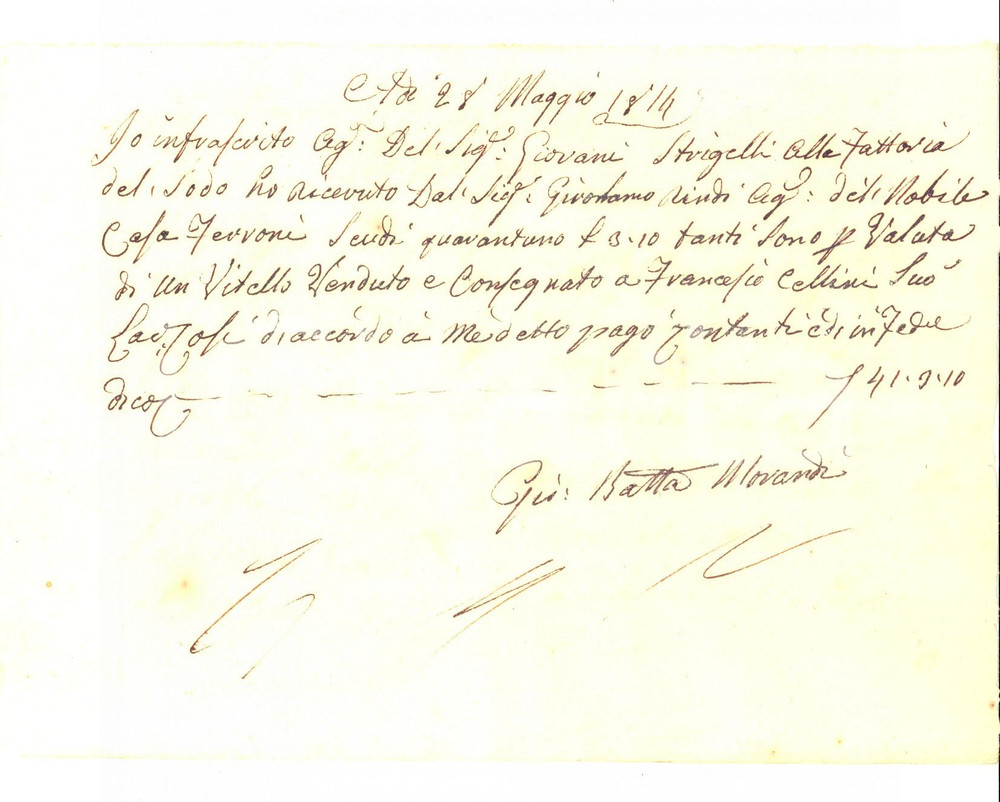 Adi 28 Maggio 1814
Io infrascrito Ag.e: Del: Sig.r: Giovani Strigelli Alla Fattoria
del: Sodo ho ricevuto Dal: Sig.r: Girolamo Rindi Ag.e: del: Nobile
Casa Ferroni Scudi quarantuno £ 3.10 tanti Sono p Valuta
di Un Vitello Venduto e Consegnato a Francesco Cellini Suo
Lav: Cosi diaccordo à Me detto pagò Contanti è di in Fede
dico — — — — — — — ∫ 41.3.10
Gio: Batta Morandi